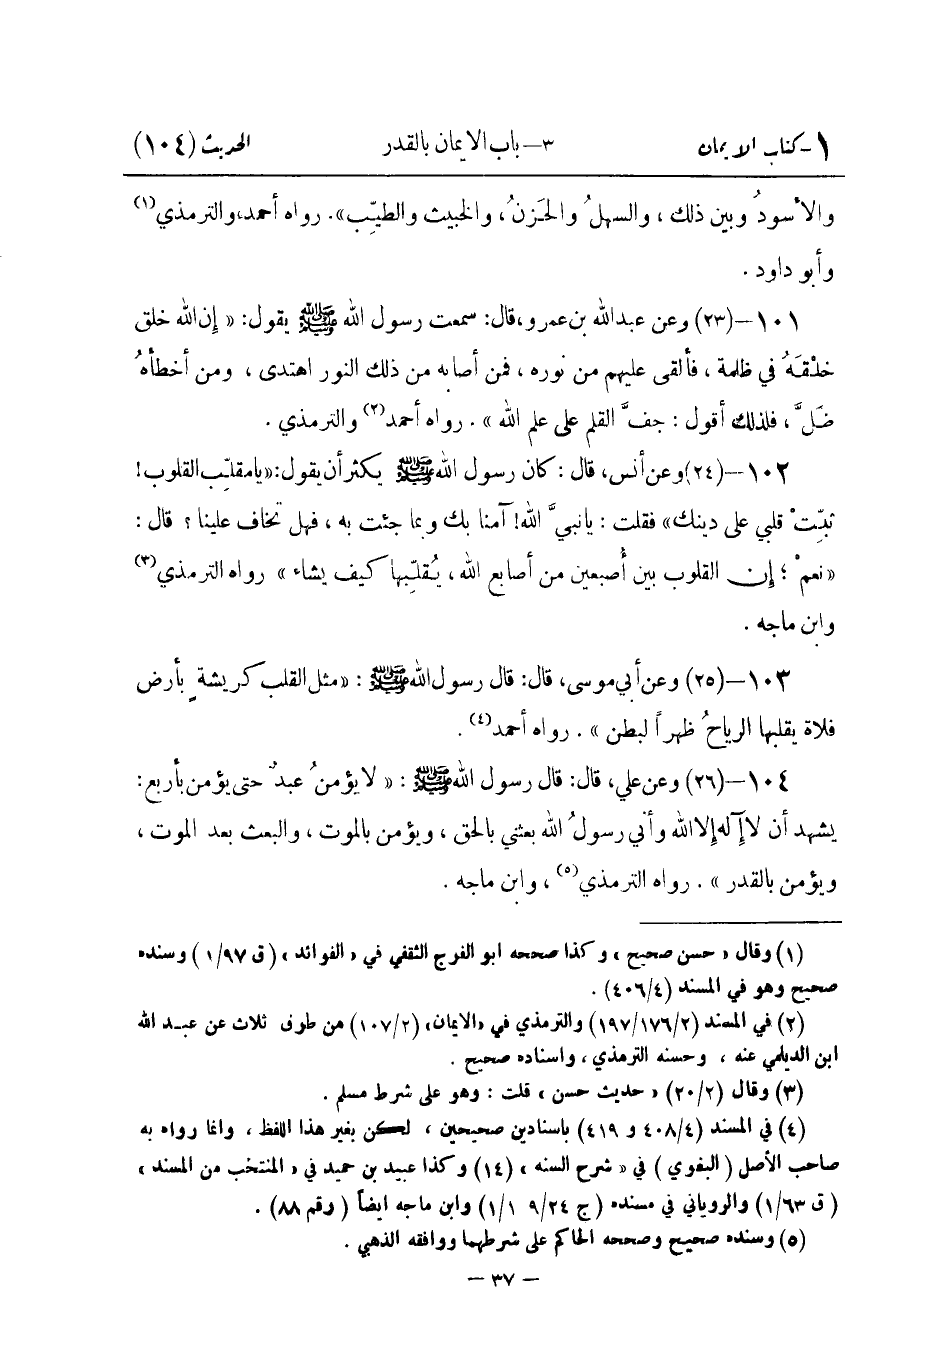 ١- كتاب الايمان ٣- باب الايمان بالقدر الحديث (١٠٤)
والأسودُ وبين ذلك ، والسهلُ والحَزنُ، والخبيث والطيِّب». رواه أحمد،والترمذي(١)
وأبو داود .
١٠١-(٢٣) وعن عبدالله بن عمرو،قال: سمعت رسول الله ﷺ يقول: « إن الله خلق
خلْقهُ في ظلمة ، فألقى عليهم من نوره ، فمن أصابه من ذلك النور اهتدى ، ومن أخطأهُ
ضَلَّ ، فلذلك أقول : جفَّ القلم على علم الله » . رواه أحمد(٢) والترمذي .
١٠٢-(٢٤)وعن أنس، قال : كان رسول الله ﷺ يكثر أن يقول:«يا مقلِّب القلوب!
ثبِّتْ قلبي على دينك» فقلت : يا نبيَّ الله! آمنا بك وبما جئت به ، فهل تخاف علينا ؟ قال :
«نعمْ ؛ إن القلوب بين أُصبعين من أصابع الله ، يُقلّبِها كيف يشاء » رواه الترمذي(٣)
وابن ماجه .
١٠٣-(٢٥) وعن أبي موسى، قال: قال رسول الله ﷺ : «مثل القلب كريشةٍ بأرض
فلاة يقلبها الرياحُ ظهراً لبطن » . رواه أحمد(٤) .
١٠٤-(٢٦) وعن علي، قال: قال رسول الله ﷺ : « لا يؤمنُ عبدٌ حتى يؤمن بأربع:
يشهد أن لا إله إلا الله وأني رسولُ الله بعثني بالحق ، ويؤمن بالموت ، والبعث بعد الموت ،
ويؤمن بالقدر » . رواه الترمذي(٥) ، وابن ماجه .
(١) وقال « حسن صحيح » وكذا صححه ابو الفرج الثقفي في « الفوائد » (ق ١/٩٧) وسنده
صحيح وهو في المسند (٤٠٦/٤) .
(٢) في المسند (١٩٧/١٧٦/٢) والترمذي في «الايمان» (١٠٧/٢) من طرق ثلاث عن عبـد الله
ابن الديلمي عنه ، وحسنه الترمذي ، واسناده صحيح .
(٣) وقال (٢٠/٢) « حديث حسن » قلت : وهو على شرط مسلم .
(٤) في المسند (٤٠٨/٤ و ٤١٩) باسنادين صحيحين ، لكن بغير هذا اللفظ ، وانما رواه به
صاحب الأصل ( البغوي ) في « شرح السنه » (١٤) وكذا عبيد بن حميد في « المنتخب من المسند »
( ق ١/٦٣) والروياني في مسنده ( ج ٩/٢٤ ١/١) وابن ماجه ايضاً ( رقم ٨٨) .
(٥) وسنده صحيح وصححه الحاكم على شرطهما ووافقه الذهبي .
- ٣٧ -